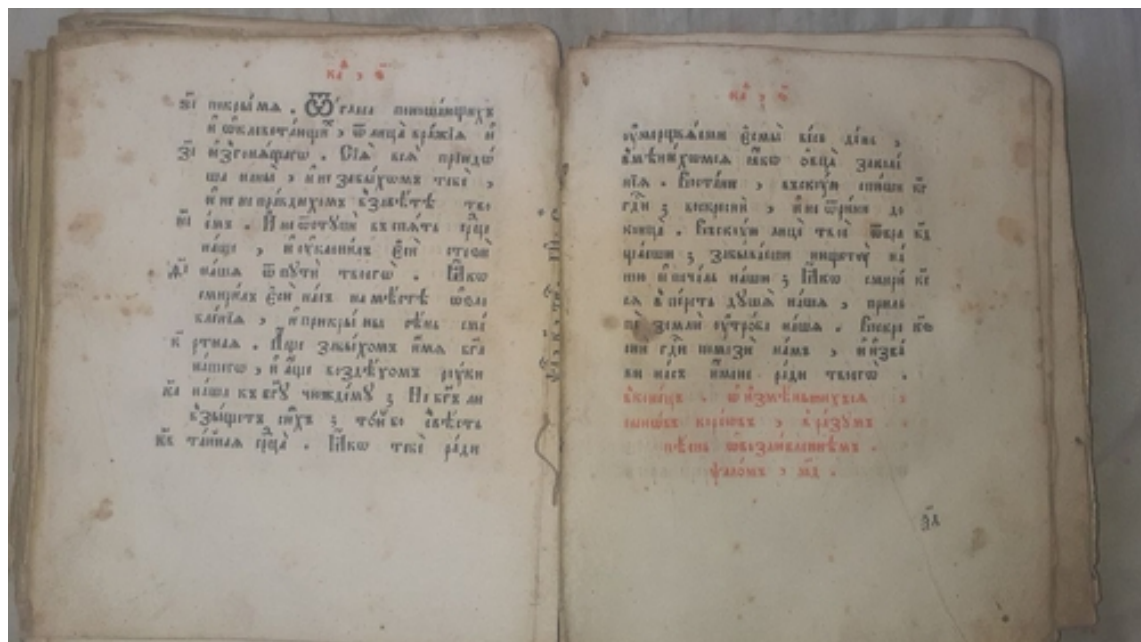 ѕ҃і покры́ мя . Ѿ гла́са поноша́ющихъ
и҆ ѡ҆клевета́ющихъ , ѿ лица̀ вра́жїя и҆
з҃і и҆згоня́щагѡ . Сїѧ̀ всѧ̀ прїидо́
ша на ны̀ , и҆ не забы́хомъ тебѐ ,
и҆ не непра́вдихомъ в завѣ́тѣ тво
и҃і е́мъ . И҆ не ѿступѝ вспя́ть се́рдце
на́ше , и҆ ᲂу҆клони́лъ є҆сѝ стезѝ
ѳ҃і на́шя ѿ путѝ твоегѡ̀ . Ꙗ҆́кѡ
смири́лъ є҆сѝ на́съ на мѣ́стѣ ѡ҆ѕло
бле́нїя , и҆ прикры́ ны сѣ́нь сме́
к҃ ртная . А҆́ще забы́хомъ и҆́мя бг҃а
на́шегѡ , и҆ а҆́ще воздѣ́хомъ ру́ки
к҃а на́ша къ бг҃ꙋ чужде́мꙋ ; Не бг҃ъ ли
взы́щетъ си́хъ ; то́й бо свѣ́сть
к҃в та́йная се́рдца̀ . Ꙗ҆́кѡ тебѐ ра́ди
ᲂу҆мерщвля́еми є҆смы̀ ве́сь де́нь ,
вмѣни́хомся ꙗ҆́кѡ ѻ҆́вца̀ заколе́
нїя . Воста́ни , вскꙋ́ю спи́ши к҃г
гдⷭ҇и ; воскреснѝ , и҆ не ѿри́ни до
конца̀ . Вскꙋ́ю лицѐ твоѐ ѿвра к҃д
ща́еши ; забыва́еши нищетꙋ̀ на́
шꙋ и҆ печа́ль на́шꙋ ; Ꙗ҆́кѡ смири́ к҃е
ся в пе́рсть дꙋша̀ на́ша , прильпѐ
землѝ ᲂу҆тро́ба на́ша . Воскре к҃ѕ
снѝ гдⷭ҇и помозѝ на́мъ , и҆ и҆зба́
ви на́съ и҆́мене ра́ди твоегѡ̀ .
в коне́цъ . ѡ҆ и҆змѣ́ньшихся ,
сыно́мъ коре́ѡвъ , в ра́зумъ .
пѣ́снь ѡ҆ возлю́бленнѣмъ .
ѱало́мъ , м҃д .